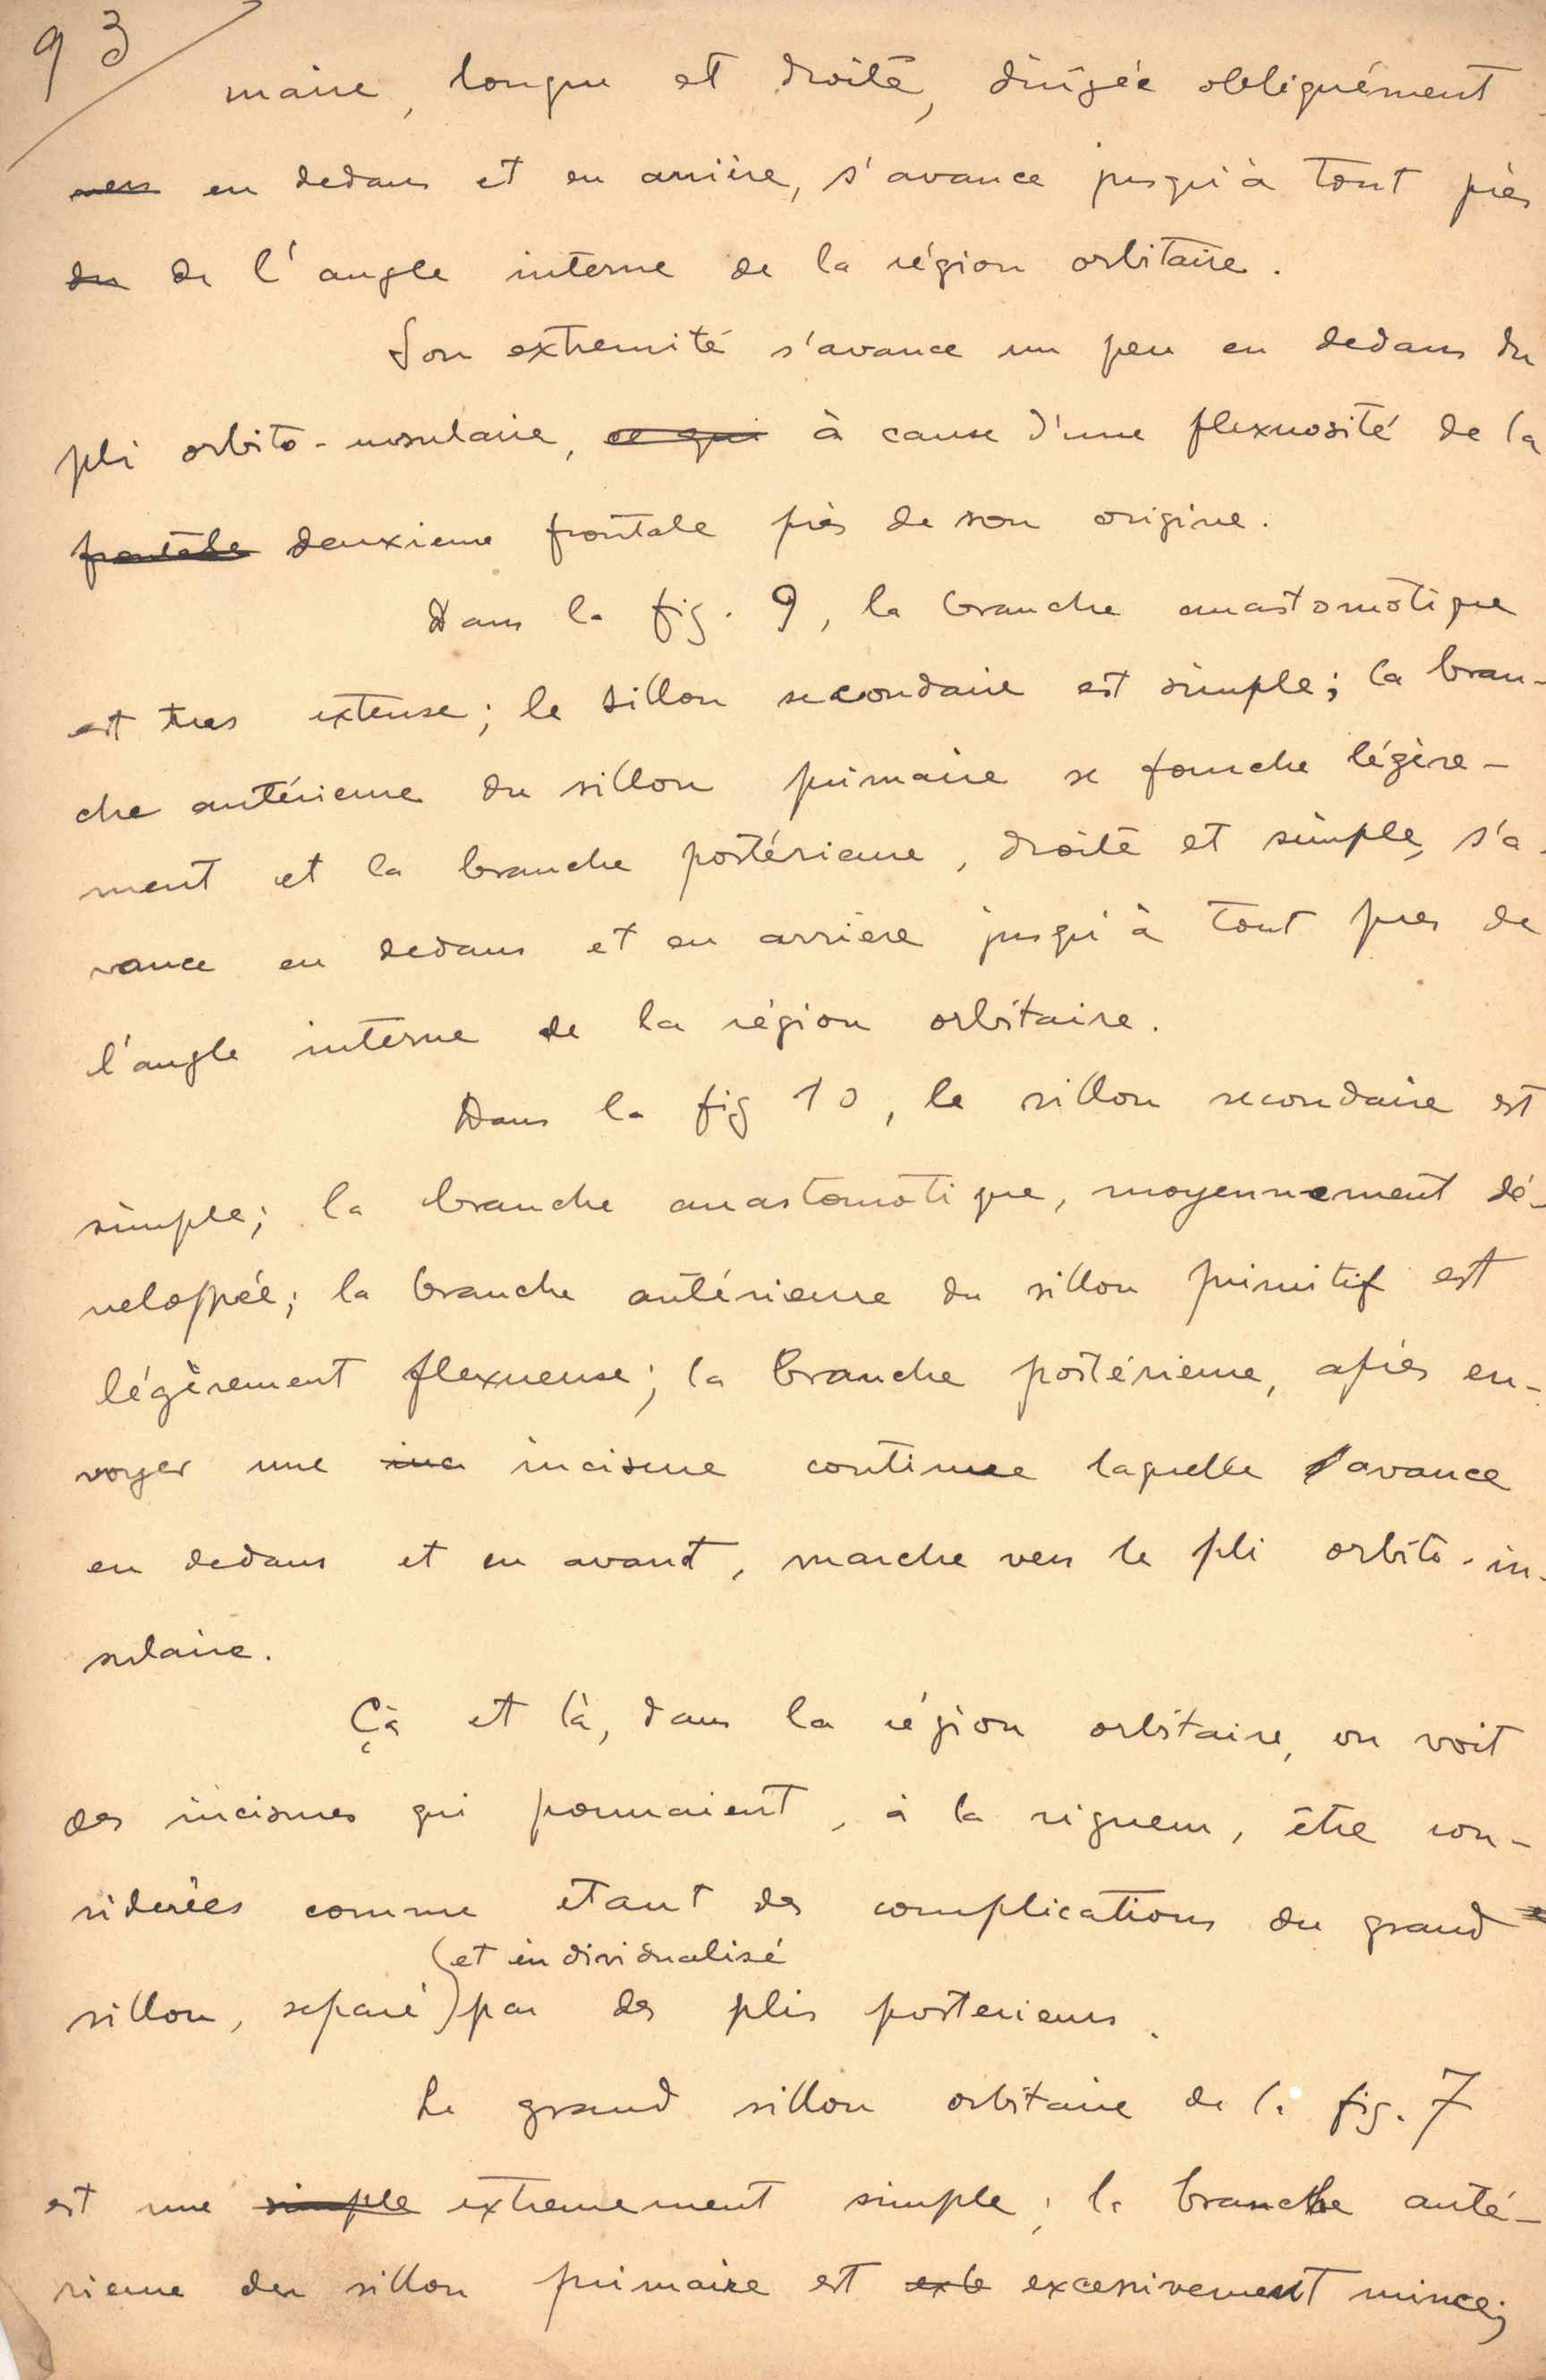 93
maire, longue et droite, dirigée obliquément
vers en dedans et en arrière, s'avance jusqu'à tout près
du de l'angle interne de la région orbitaire.
Son extremité s'avance un peu en dedans du
pli orbito-insulaire, ce qui à cause d'une flexuosité de la
frontale deuxieme frontale près de son origine.
Dans la fig. 9, la branche anastomotique
est tres extense; le sillon secondaire est simple; la bran-
che antérieure du sillon primaire se fourche légère-
ment et la branche postérieure, droite et simple, s'a-
vance en dedans et en arrière jusqu'à tout pres de
l'angle interne de la région orbitaire.
Dans la fig 10, le sillon secondaire est
simple; la branche anastomotique, moyennement dé-
veloppée; la branche antérieure du sillon primitif est
légèrement flexueuse; la branche postérieure, après en-
voyer une inci incisure continue laquelle s'avance
en dedans et en avant, marche vers le pli orbito-in-
sulaire.
Çà et là, dans la région orbitaire, on voit
des incisures qui pourraient, à la rigueur, être con-
siderées comme etant des complications du grand
(et individualisé
sillon, separé) par des plis posterieurs.
Le grand sillon orbitaire de la fig. 7
est une simple extremement simple; la branche anté-
rieure du sillon primaire est excessivement mince;